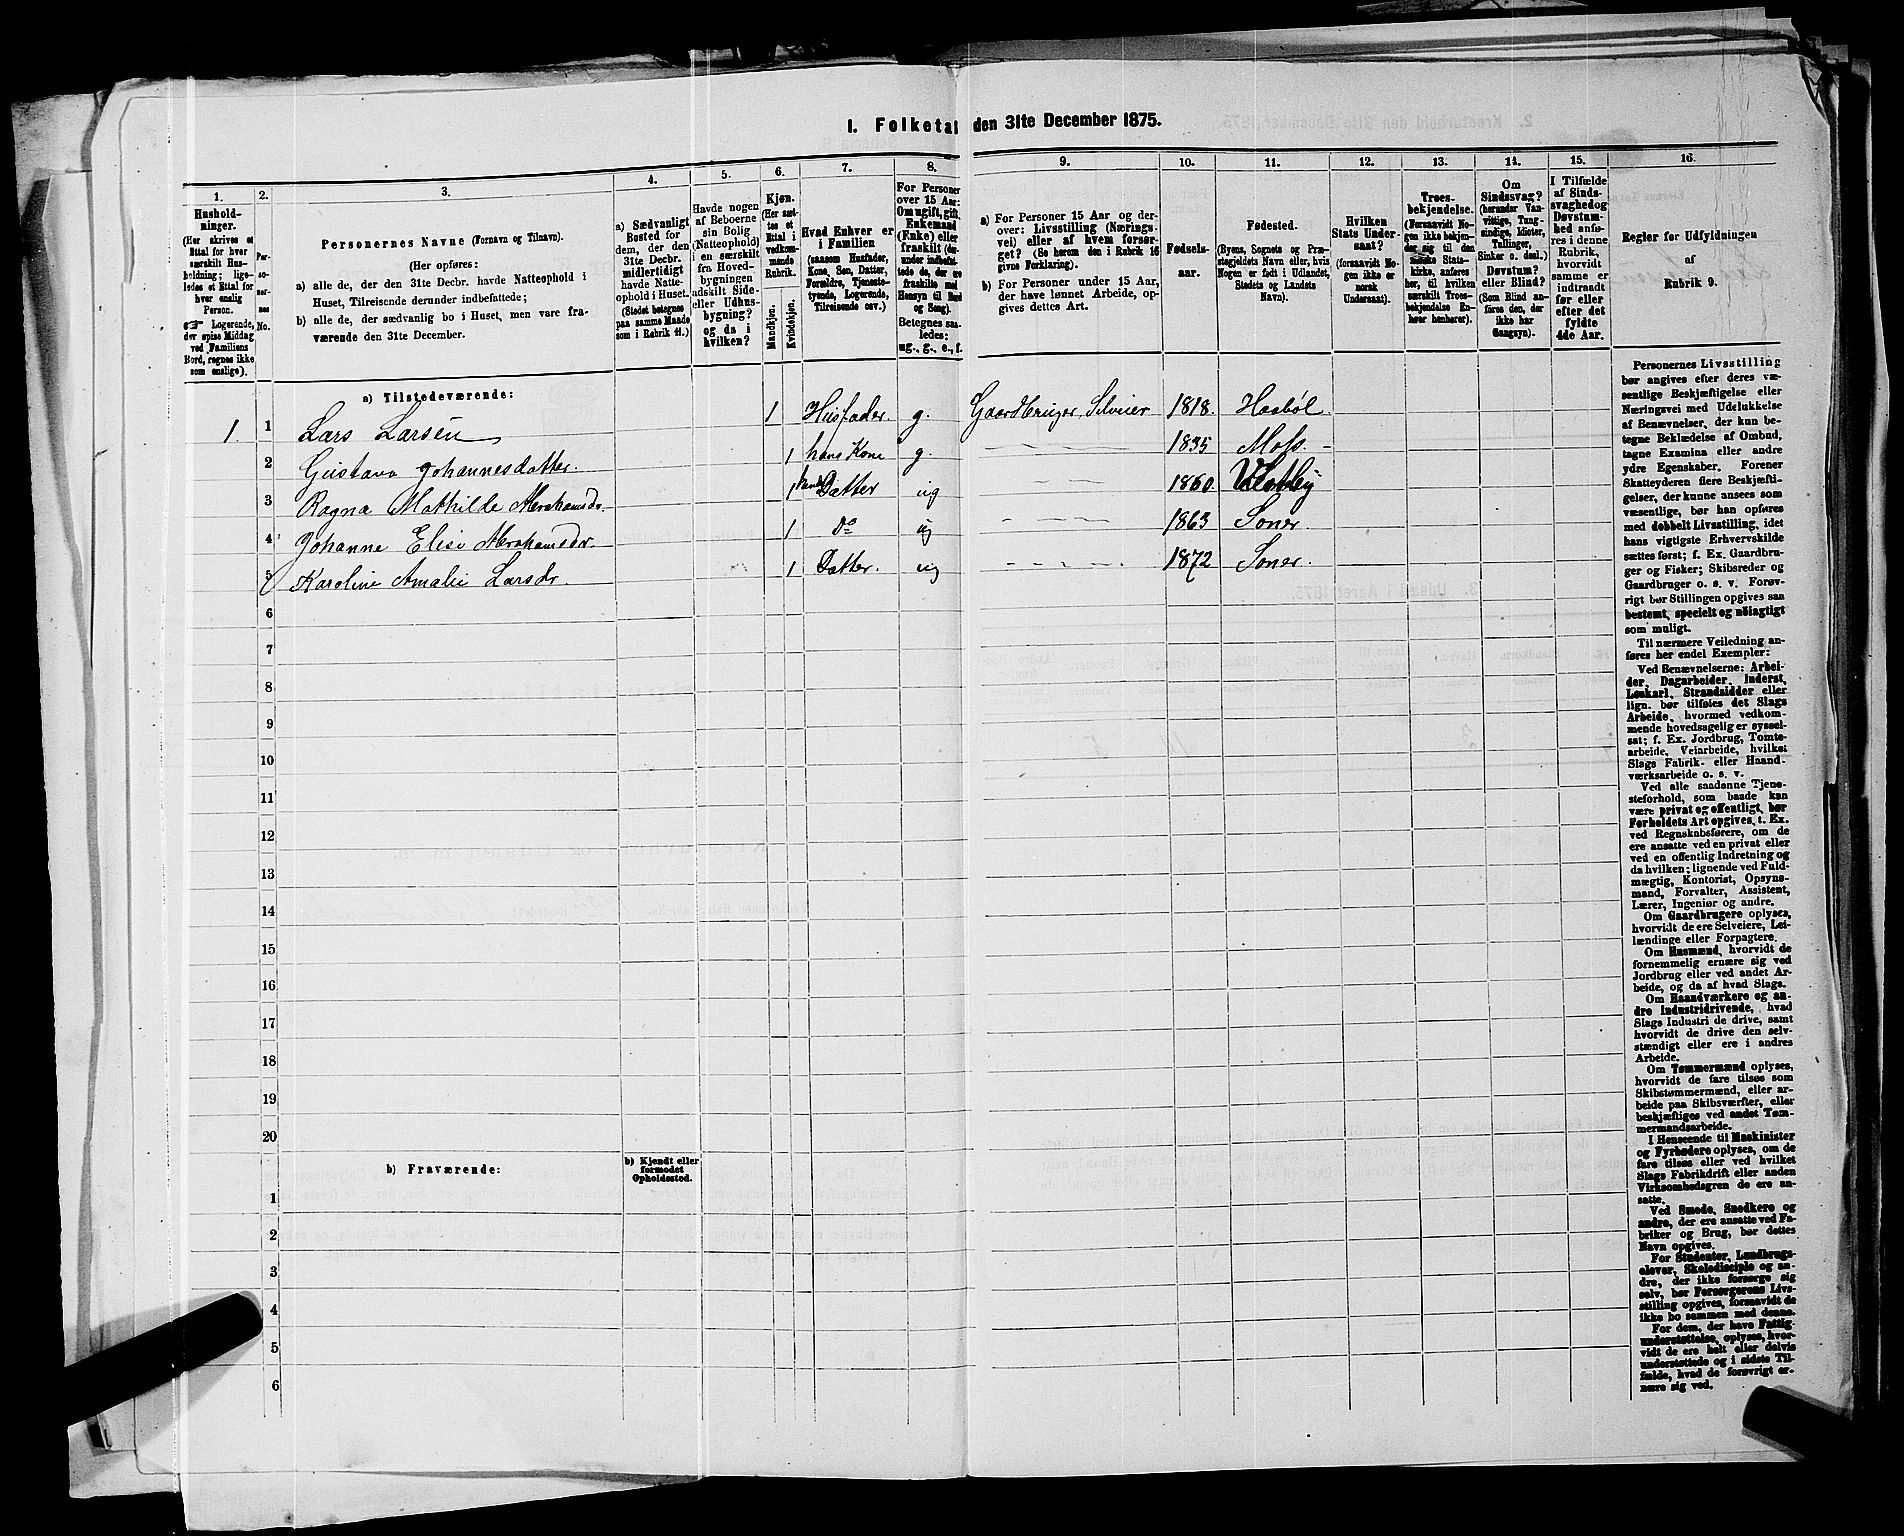 1. Folketal den 31te December 1875.
1.
Hushold-
ninger.
(Her skrives et
Ettal for hver
særskilt Hus-
holdning; lige-
ledes et Ettal for
hver enslig
Person.
☞ Logerende,
der spise Middag
ved Familiens
Bord, regnes ikke
som enslige).
2.
Per-
so-
ner-
nes
No.
3.
Personernes Navne (Fornavn og Tilnavn).
(Her opføres:
a) alle de, der den 31te Decbr. havde Natteophold i
Huset, Tilreisende derunder indbefattede;
b) alle de, der sædvanlig bo i Huset, men vare fra-
værende den 31te December.
4.
a) Sædvanligt
Bosted for
dem, der den
31te Decbr.
midlertidigt
havde Natte-
ophold i Huset.
(Stedet betegnes
paa samme Maade
som i Rubrik 11.)
5.
Havde nogen
af Beboerne
sin Bolig
(Natteophold)
i en særskilt
fra Hoved-
bygningen
adskilt Side-
eller Udhus-
bygning?
og da i
hvilken?
6.
Kjøn.
(Her sæt-
tes et
Ettal i
vedkom-
mende
Rubrik.
Mandkjøn.
Kvindekjøn.
7.
Hvad Enhver er
i Familien
(saasom Husfader,
Kone, Søn, Datter,
Forældre, Tjeneste-
tyende, Logerende,
Tilreisende osv.)
8.
For Personer
over 15 Aar:
Om ugift, gift,
Enkemand
(Enke) eller
fraskilt (der-
under indbefat-
tede de, der ere
fraskilte med
Hensyn til Bord
og Seng).
Betegnes saa-
ledes:
ug., g., e., f.
9.
a) For Personer 15 Aar og der-
over: Livsstilling (Nærings-
vei) eller af hvem forsør-
get? (Se herom den i Rubrik 16
givne Forklaring).
b) For Personer under 15 Aar,
der have lønnet Arbeide, op-
gives dettes Art.
10.
Fødsels-
aar.
11.
Fødested.
(Byens, Sognets og Præ-
stegjeldets Navn eller, hvis
Nogen er født i Udlandet,
Stedets og Landets
Navn).
12.
Hvilken
Stats Under-
saat?
(foraavidt No-
gen ikke er
norsk
Undersaat).
13.
Troes-
bekjendelse.
(Forsaavidt No-
gen ikke bekjen-
der sig til den
norske Stats-
kirke, anføres
her, til hvilken
særskilt Troes-
bekjendelse En-
hver henhører).
14.
Om
Sindssvag?
(herunder Van-
vittige, Tung-
sindige, Idioter,
Tullinger,
Sinker o. desl.)
Døvstum?
eller Blind?
(Som Blind an-
føres den, der
ikke har
Gangsyn).
15.
I Tilfælde
af Sinds-
svaghed og
Døvstum-
hed anfø-
res i denne
Rubrik,
hvorvidt
samme er
indtraadt
før eller
efter det
fyldte
4de Aar.
16.
Regler for Udfyldningen
af
Rubrik 9.
a) Tilstedeværende:
1. 1 Lars Larsen 1 Husfader g. Gaardbruger, Selveier 1818. Haabøl
2 Gustava Johannesdatter. 1 hans Kone g. 1835 Moss.
3 Ragna Mathilde Abrahamsdr. 1 hendes Datter ug 1860 Vestby
4 Johanne Elise Abrahamsdr. 1 Do ug 1863 Soner.
5 Karoline Amalie Larsdr. 1 Datter. ug 1872 Soner.
6
7
8
9
10
11
12
13
14
15
16
17
18
19
20
b) Fraværende:
b) Kjendt eller
formodet
Opholdssted.
1
2
3
4
5
6
Personernes Livsstilling
bør angives efter deres væ-
sentlige Beskjæftigelse eller
Næringsvei med Udelukkelse
af Benævnelser, der kun be-
tegne Beklædelse af Ombud,
tagne Examina eller andre
ydre Egenskaber. Forener
Skatteyderen flere Beskjæfti-
gelser, der kunne ansees som
væsentlige, bør han opføres
med dobbelt Livsstilling, idet
hans vigtigste Erhvervskilde
sættes først; f. Ex. Gaardbru-
ger og Fisker; Skibsreder og
Gaardbruger o. s. v. Forøv-
rigt bør Stillingen opgives saa
bestemt, specielt og nöiagtigt
som muligt.
Til nærmere Veiledning an-
føres her endel Exempler:
Ved Benævnelserne: Arbei-
der, Dagarbeider, Inderst,
Løskarl, Strandsidder eller
lign. bør tilføies det Slags
Arbeide, hvormed vedkom-
mende hovedsagelig er syssel-
sat; f. Ex. Jordbrug, Tomte-
arbeide, Veiarbeide, hvilket
Slags Fabrik- eller Haand-
værksarbeide o. s. v.
Ved alle saadanne Tjene-
steforhold, som baade kan
være privat og offentligt, bør
Forholdets Art opgives, t. Ex.
ved Regnskabsførere, om de
ere ansatte ved en privat eller
ved en offentlig Indretning og
da hvilken; lignende ved Fuld-
mægtig, Kontorist, Opsyns-
mand, Forvalter, Assistent,
Lærer, Ingeniør og andre.
Om Gaardbrugere oplyses,
hvorvidt de ere Selveiere, Lei-
lændinge eller Forpagtere.
Om Husmænd, hvorvidt de
fornemmelig ernære sig ved
Jordbrug eller ved andet Ar-
beide, og da af hvad Slags.
Om Haandværkere og an-
dre Industridrivende, hvad
Slags Industri de drive, samt
hvorvidt de drive den selv-
stændigt eller ere i andres
Arbeide.
Om Tømmermænd oplyses,
hvorvidt de fare tilsøs som
Skibstømmermænd, eller ar-
beide paa Skibsværfter, eller
beskjæftiges ved andet Tøm-
mermandsarbeide.
I Henseende til Maskinister
og Fyrbødere oplyses, om de
fare tilsøs eller ved hvilket
Slags Fabrikdrift eller anden
Virksomhedsgren de ere an-
satte.
Ved Smede, Snedkere og
andre, der ere ansatte ved Fa-
briker og Brug, bør dettes
Navn opgives.
For Studenter, Landbrugs-
elever, Skoledisciple og an-
dre, der ikke forsørge sig
selv, bør Forsørgerens Livs-
stilling opgives, forsaavidt de
ikke bo sammen med denne.
For dem, der have Fattig-
understøttelse, oplyses, hvor-
vidt de ere helt eller delvis
understøttede og i sidste Til-
fælde, hvad de forøvrigt er-
nære sig ved.